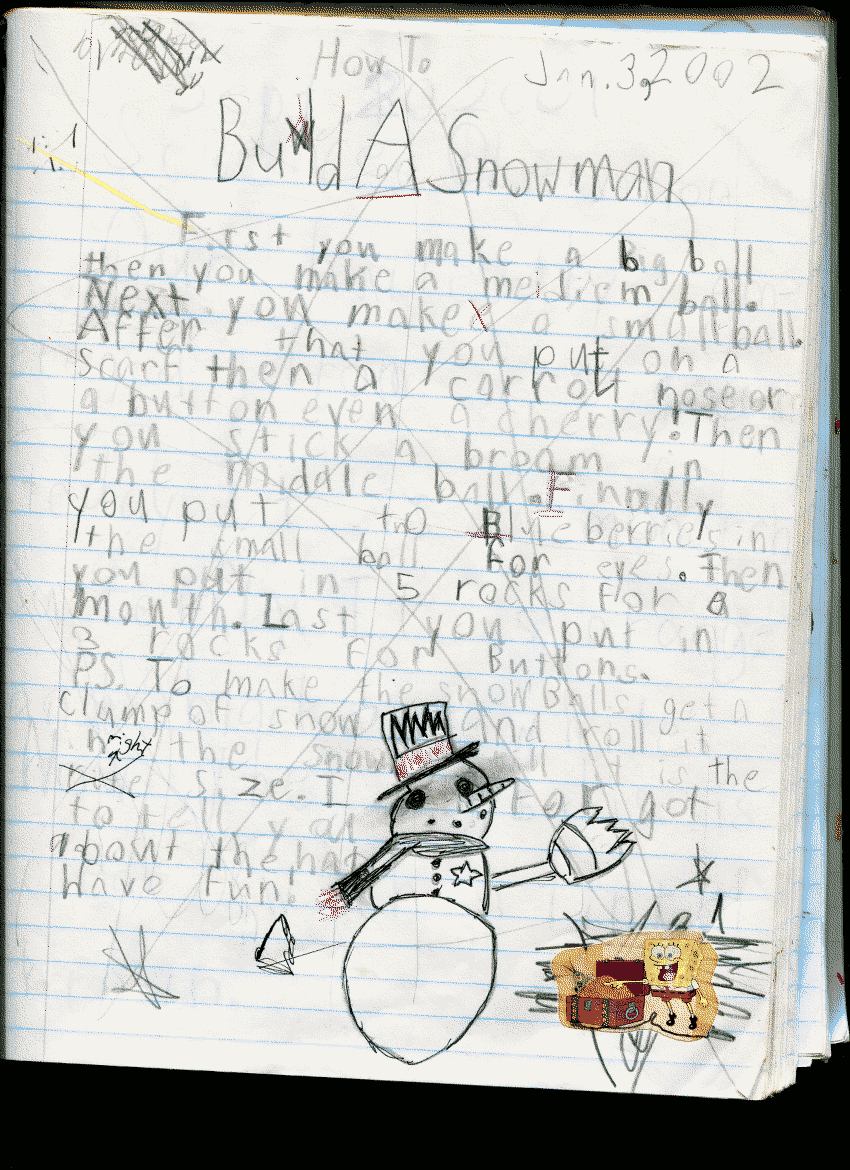 How To
Jan. 3, 2002
Build A Snowman
First you make a big ball
then you make a mediem ball.
Next you make a small ball.
After that you put on a
scarf then a carrot nose or
a button even a cherry! Then
you stick a broom in
the middle ball. Finally
you put two Blueberries in
the small ball for eyes. Then
you put in 5 rocks for a
mouth. Last you put in
3 rocks for Buttons.
P.S. To make the snow Balls, get a
clump of snow and roll it
in the snow it is the
right size. I forgot
to tell you
about the hat
have fun!